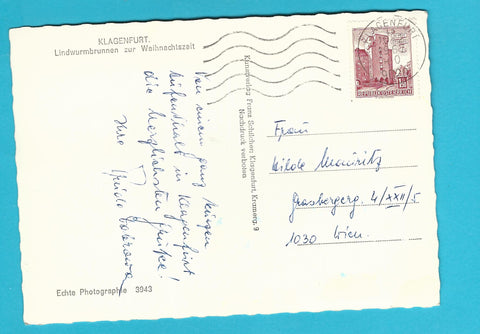 KLAGENFURT.
Lindwurmbrunnen zur Weihnachtszeit
Von einem ganz kurzen
Aufenthalt in Klagenfurt
die herzlichsten Grüße!
Ihre
Echte Photographie 3943
Kunstverlag Franz Schilcher, Klagenfurt, Kramerg. 9
Nachdruck verboten
KLAGENFURT
REPUBLIK ÖSTERREICH
Frau
Grasbergerg. 4/XXII/5
1030 Wien.